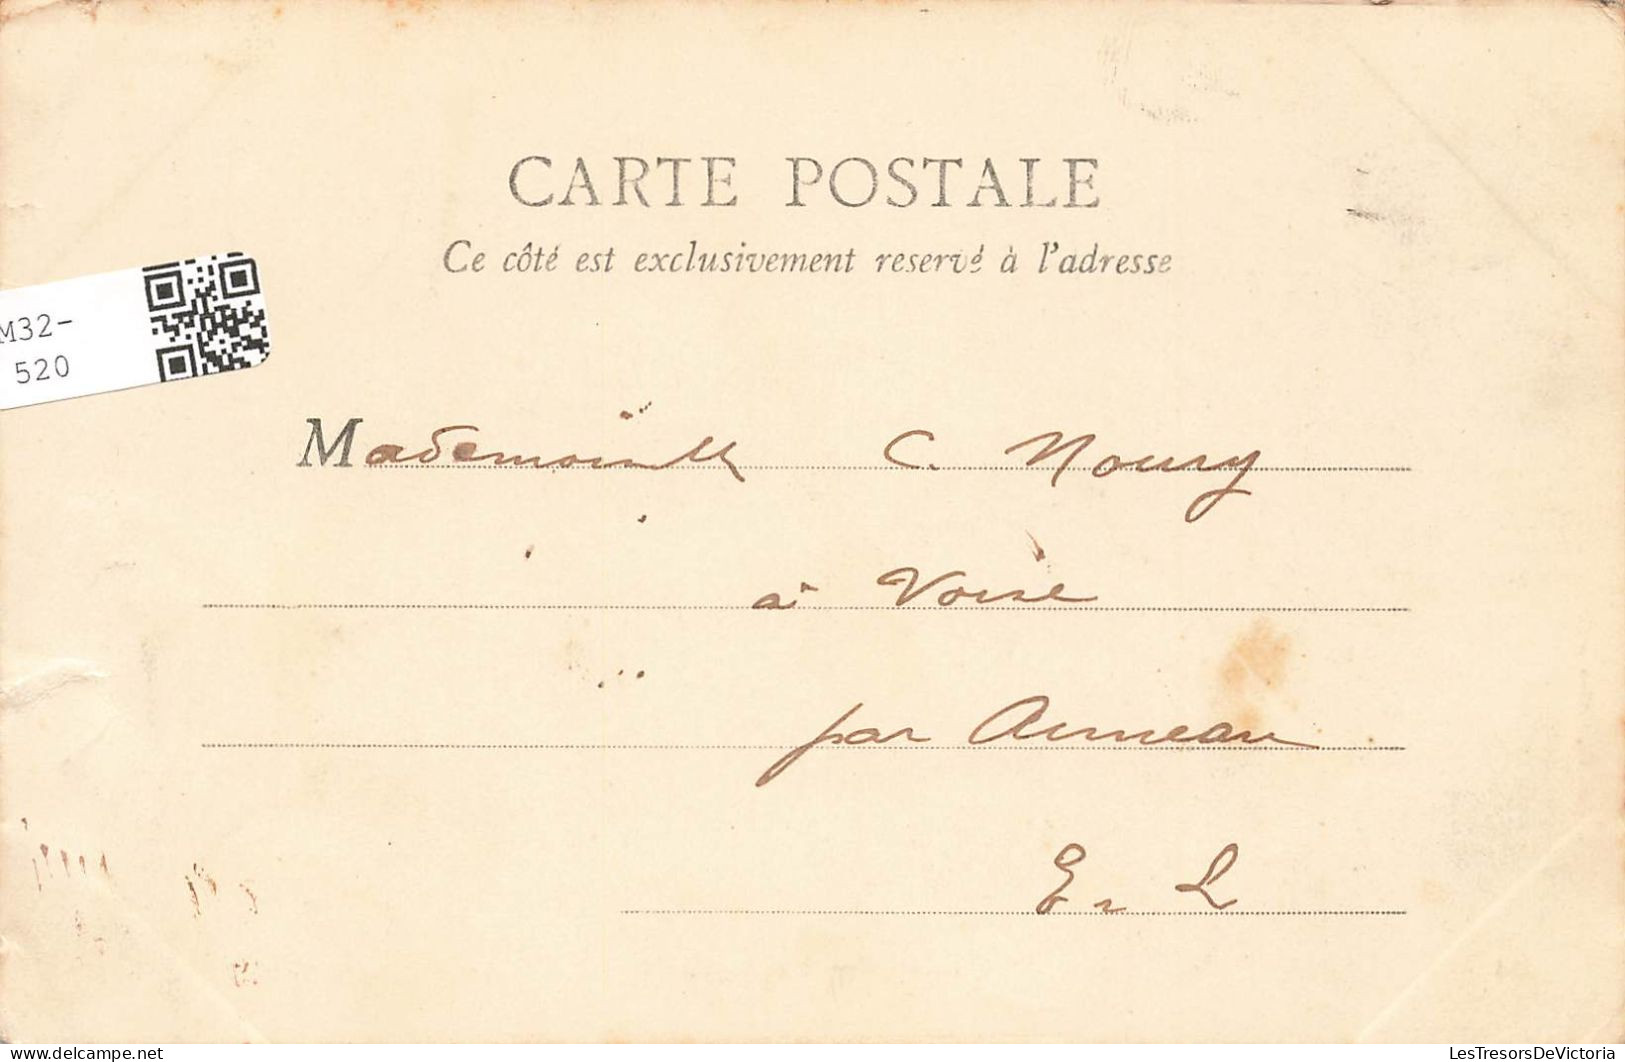 CARTE POSTALE
Ce côté est exclusivement reservé à l'adresse
M32-
520
Mademoiselle C. Noury
à Voise
par Auneau
E & L
delcampe.net
LesTresorsDeVictoria